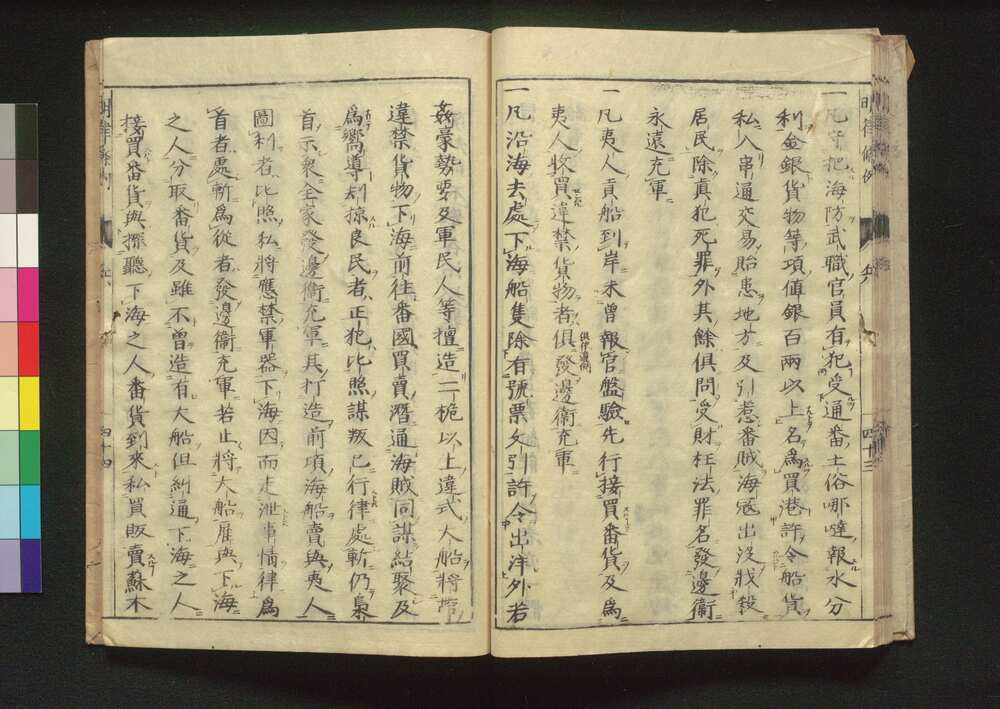 一凡守把海防武職官員有犯受通番土俗哪噠報水分
利金銀貨物等項值銀百兩以上名為買港許令船貨
私入串通交易貽患地方及引惹番賊海寇出沒戕殺
居民除真犯死罪外其餘俱問受財枉法罪名發邊衛
永遠充軍
一凡夷人貢船到岸未曾報官盤驗先行接買番貨及為
夷人收買違禁貨物者俱發邊衛充軍
一凡沿海去處下海船隻除有號票文引許令出洋外若
姦豪勢要及軍民人等擅造二桅以上違式大船將帶
違禁貨物下海前往番國買賣潛通海賊同謀結聚及
為嚮導刦掠良民者正犯比照謀叛已行律處斬仍梟
首示衆全家發邊衛充軍其打造前項海船賣與夷人
圖利者比照私將應禁軍器下海因而走泄事情律為
首者處斬為從者發邊衛充軍若止將大船雇與下海
之人分取番貨及雖不曾造有大船但糾通下海之人
接買番貨與探聽下海之人番貨到來私買販賣蘇木
明律條例
四十三
明律條例
四十四